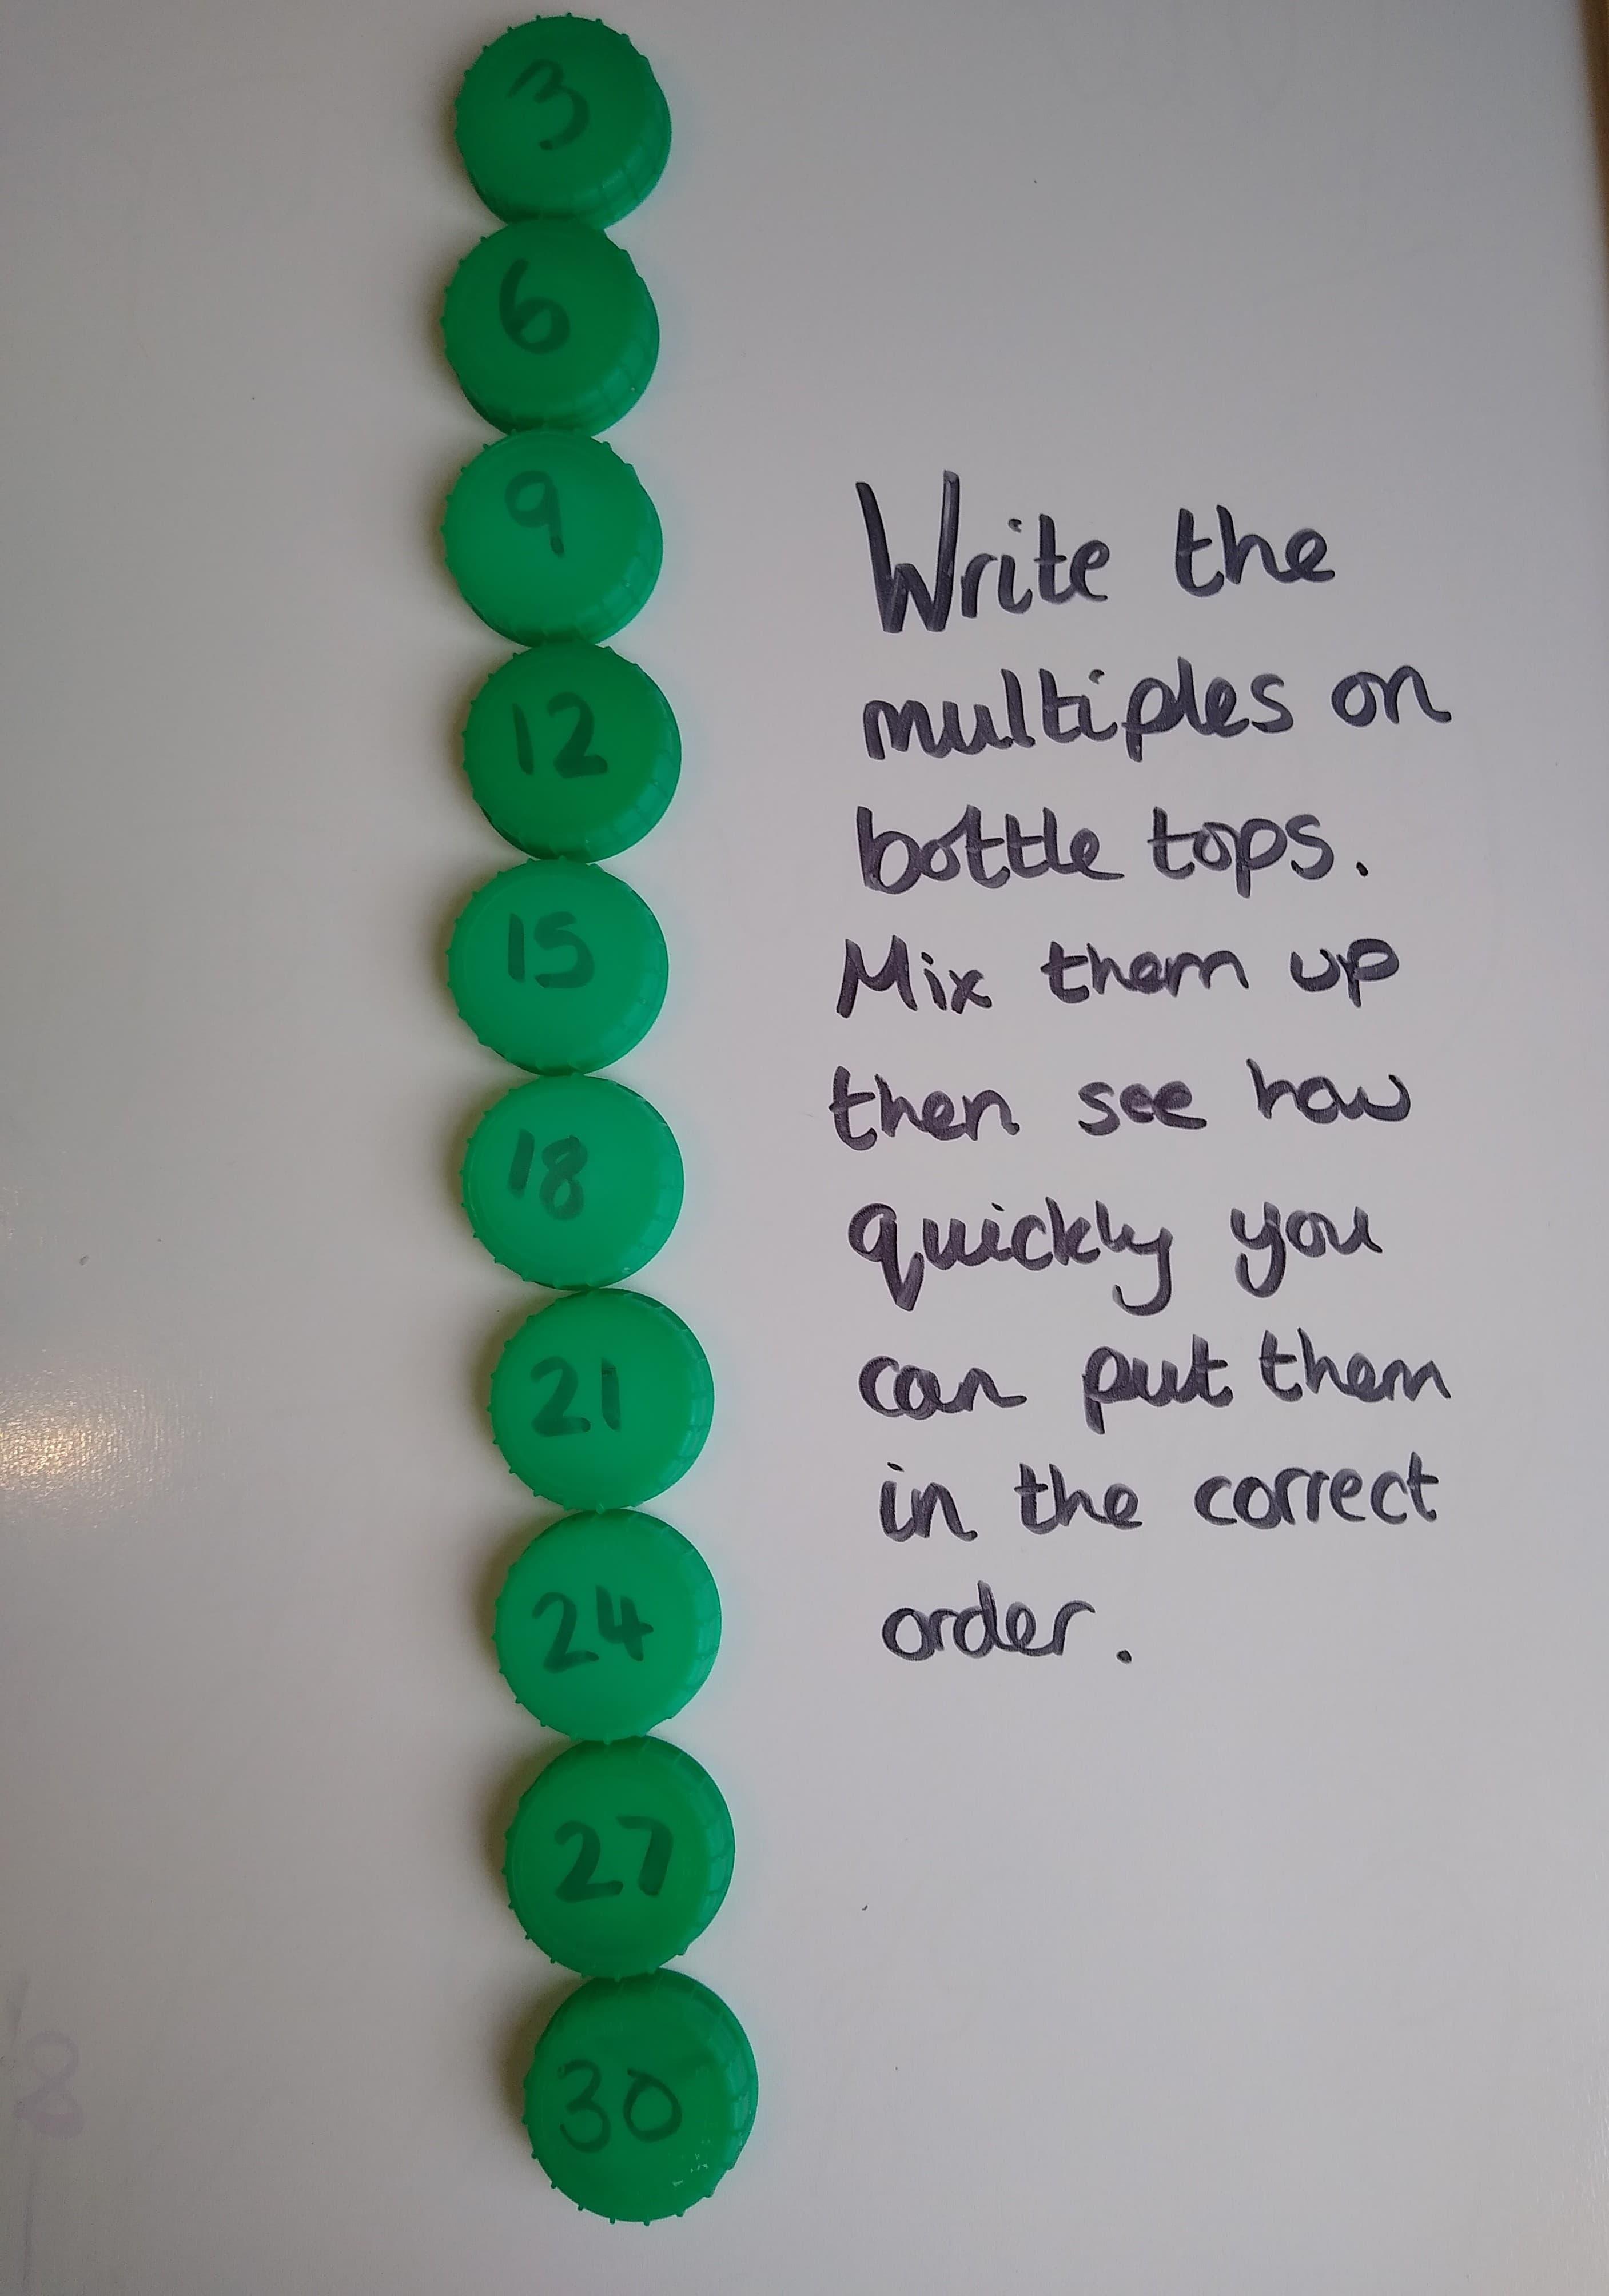 3
6
9
12
15
18
21
24
27
30
Write the
multiples on
bottle tops.
Mix them up
then see how
quickly you
can put them
in the correct
order.